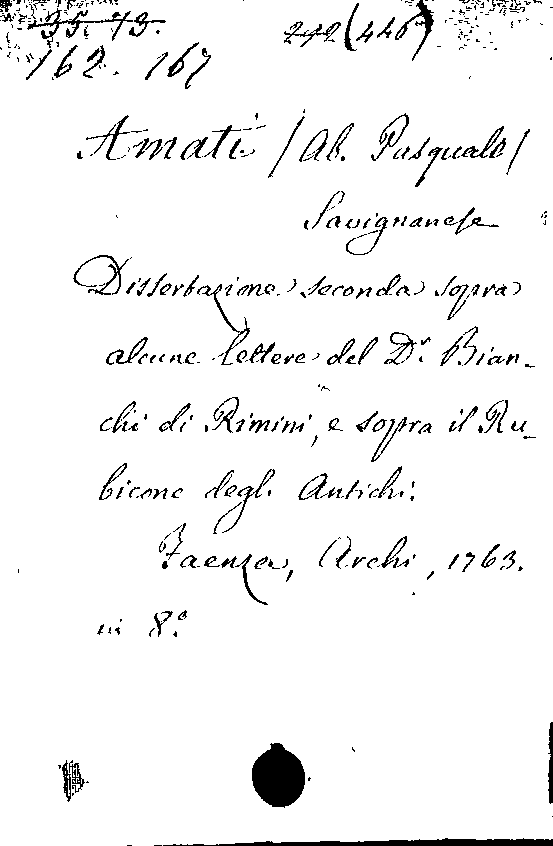 35. 43. 242 (446)
162. 167
Amati / Ab. Pasquale /
Savignanese
Dissertazione seconda sopra
alcune lettere del Dr. Bian-
chi di Rimini, e sopra il Ru-
bicone degli Antichi.
Faenza, Archi, 1763.
in 8.o